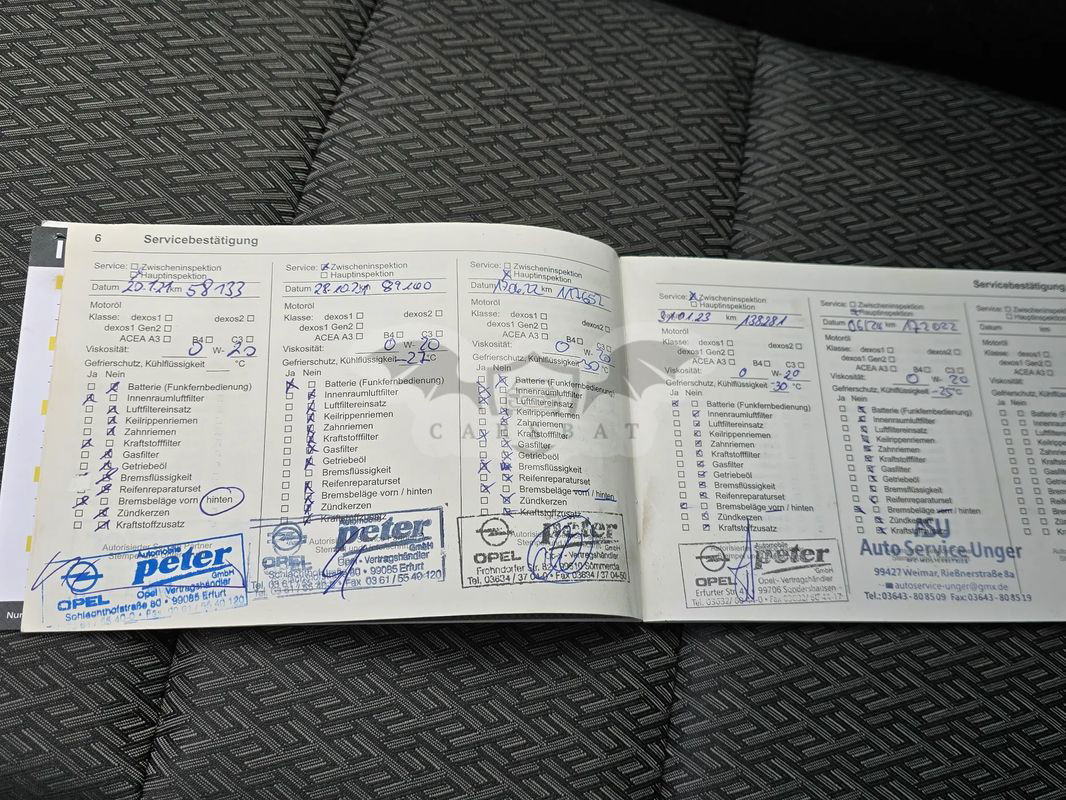 6 Servicebestätigung
Service: Zwischeninspektion
Hauptinspektion
Datum 20.1.21 km 58 133
Motoröl
Klasse: dexos1 dexos2
dexos1 Gen2
ACEA A3 B4 C3
Viskosität: 0 W- 20
Gefrierschutz, Kühlflüssigkeit °C
Ja Nein
Batterie (Funkfernbedienung)
Innenraumluftfilter
Luftfiltereinsatz
Keilrippenriemen
Zahnriemen
Kraftstofffilter
Gasfilter
Getriebeöl
Bremsflüssigkeit
Reifenreparaturset
Bremsbeläge vorn / hinten
Zündkerzen
Kraftstoffzusatz
Autorisierter Service Partner
Automobile
peter
GmbH
OPEL
Opel - Vertragshändler
Schlachthofstraße 80 • 99085 Erfurt
Service: Zwischeninspektion
Hauptinspektion
Datum 89160
Motoröl
Klasse: dexos1 dexos2
dexos1 Gen2
ACEA A3 B4 C3
Viskosität: 0 W- 20
Gefrierschutz, Kühlflüssigkeit -27 °C
Ja Nein
Batterie (Funkfernbedienung)
Innenraumluftfilter
Luftfiltereinsatz
Keilrippenriemen
Zahnriemen
Kraftstofffilter
Gasfilter
Getriebeöl
Bremsflüssigkeit
Reifenreparaturset
Bremsbeläge vorn / hinten
Zündkerzen
Kraftstoffzusatz
Automobile
peter
GmbH
OPEL
Opel - Vertragshändler
99085 Erfurt
Fax 03 61 / 55 40 120
Service: Zwischeninspektion
Hauptinspektion
Datum km
Motoröl
Klasse: dexos1 dexos2
dexos1 Gen2
ACEA A3 B4 C3
Viskosität: 0 W- 20
Gefrierschutz, Kühlflüssigkeit -30 °C
Ja Nein
Batterie (Funkfernbedienung)
Innenraumluftfilter
Luftfiltereinsatz
Keilrippenriemen
Zahnriemen
Kraftstofffilter
Gasfilter
Getriebeöl
Bremsflüssigkeit
Reifenreparaturset
Bremsbeläge vorn / hinten
Zündkerzen
Kraftstoffzusatz
Automobile
peter
GmbH
OPEL
Opel - Vertragshändler
Frohndorfer Str. Sömmerda
Tel. 03634 / 37 Fax 03634 / 37 04-50
CARABAT
Servicebestätigung
Service: Zwischeninspektion
Hauptinspektion
01.23 km 138281
Motoröl
Klasse: dexos1 dexos2
dexos1 Gen2
ACEA A3 B4 C3
Viskosität: 0 W- 20
Gefrierschutz, Kühlflüssigkeit -30 °C
Ja Nein
Batterie (Funkfernbedienung)
Innenraumluftfilter
Luftfiltereinsatz
Keilrippenriemen
Zahnriemen
Kraftstofffilter
Gasfilter
Getriebeöl
Bremsflüssigkeit
Reifenreparaturset
Bremsbeläge vorn / hinten
Zündkerzen
Kraftstoffzusatz
peter
GmbH
OPEL
Opel - Vertragshändler
Erfurter Str. 99706 Sondershausen
Service: Zwischeninspektion
Hauptinspektion
Datum 06/24 km 172022
Motoröl
Klasse: dexos1 dexos2
dexos1 Gen2
ACEA A3 B4 C3
Viskosität: 0 W- 20
Gefrierschutz, Kühlflüssigkeit -25 °C
Ja Nein
Batterie (Funkfernbedienung)
Innenraumluftfilter
Luftfiltereinsatz
Keilrippenriemen
Zahnriemen
Kraftstofffilter
Gasfilter
Getriebeöl
Bremsflüssigkeit
Reifenreparaturset
Bremsbeläge vorn / hinten
Zündkerzen
ASU
Auto Service Unger
99427 Weimar, Rießnerstraße 8a
autoservice-unger@gmx.de
Tel.: 03643 - 80 85 09 Fax: 03643 - 80 85 19
Service:
Datum km
Motoröl
Klasse:
dexos1 Gen2
ACEA A3
Viskosität:
Gefrierschutz,
Ja Nein